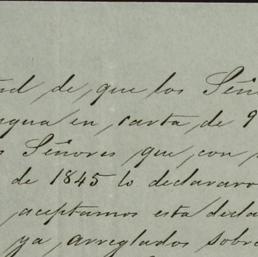 de que los Seño
agua en, carta de 9
Señores que, con
de 1845 lo declararo
aceptamos esta decla
ya, arreglados sobre